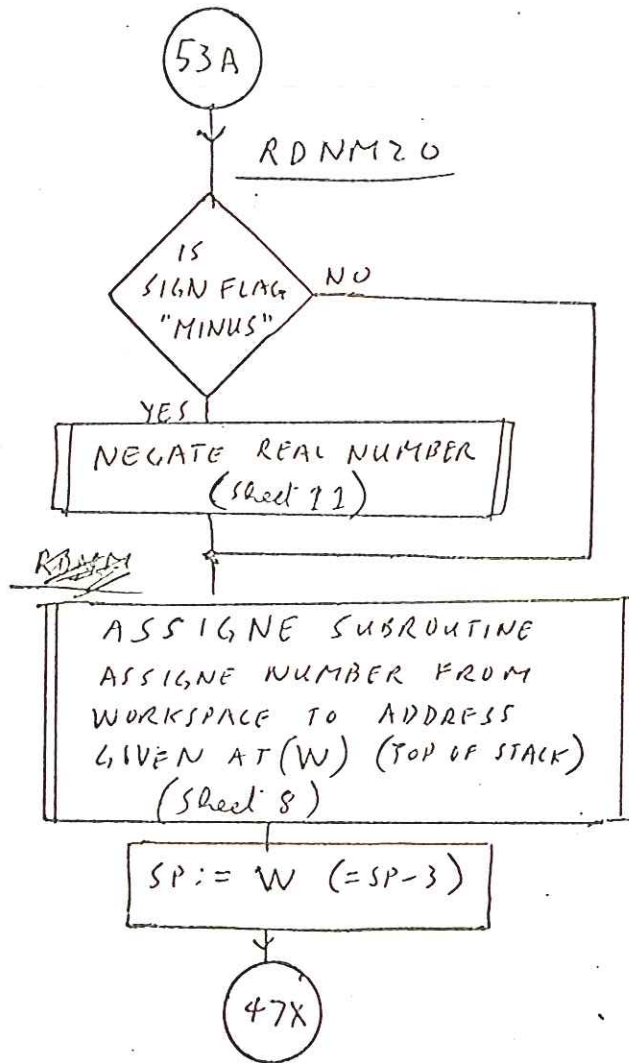 53A
RDNM20
IS
SIGN FLAG
"MINUS"
NO
YES
NEGATE REAL NUMBER
(Sheet 11)
ASSIGNE SUBROUTINE
ASSIGNE NUMBER FROM
WORKSPACE TO ADDRESS
GIVEN AT (W) (TOP OF STACK)
(Sheet 8)
SP := W (=SP-3)
47X